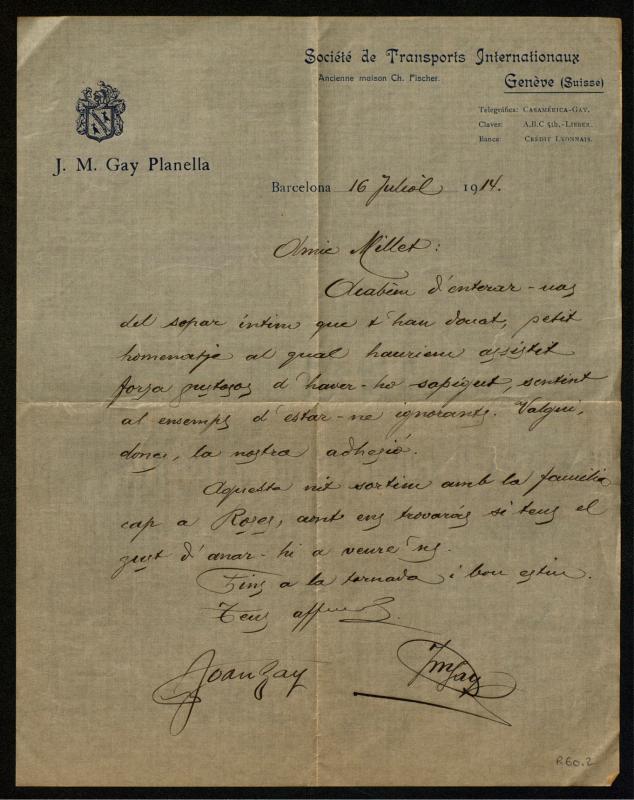 Société de Transports Internationaux
Ancienne maison Ch. Fischer.
Genève (Suisse)
Telegráfica: Casamérica-Gay.
Claves: A.B.C 5th.-Lieber.
Banca: Crédit Lyonnais.
J. M. Gay Planella
Barcelona 16 Juliol 1914.
Amic Millet:
Acabém d'enterar-nos
del sopar íntim que t'han donat, petit
homenatje al qual hauriem assistit
forsa gustosos d'haver-ho sapigut, sentint
al ensemps d'estar-ne ignorants. Valgui,
doncs, la nostra adhesió.
Aquesta nit sortim amb la familia
cap a Roses, aont ens trovarás si tens el
gust d'anar-hi a veure'ns.
Fins a la tornada i bon estiu.
Teus affms
Joan Gay
JMGay
R.60.2